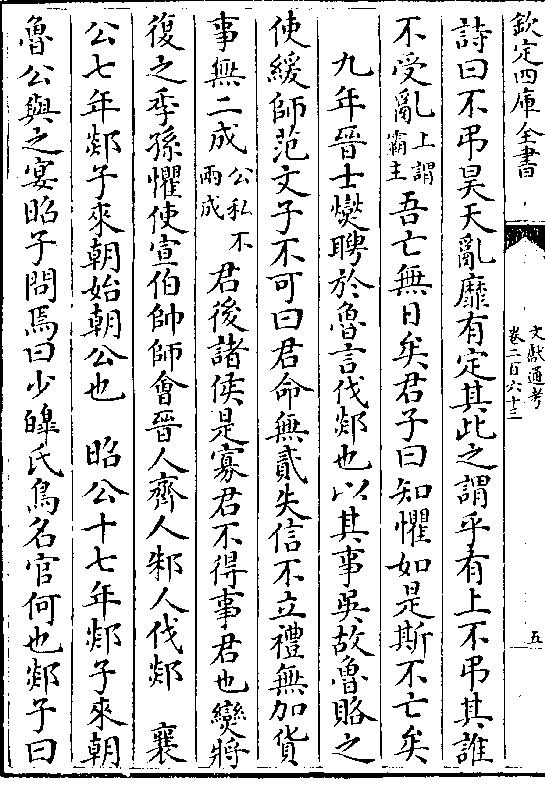 欽定四庫全書
文獻通考
卷二百六十三
五
詩曰不弔昊天亂靡有定其此之謂乎有上不弔其誰
不受亂上謂霸主吾亡無日矣君子曰知懼如是斯不亡矣
九年晉士燮聘於魯言伐郯也以其事吳故魯賂之
使緩師范文子不可曰君命無貳失信不立禮無加貨
事無二成公私不兩成君後諸侯是寡君不得事君也燮將
復之季孫懼使宣伯帥師會晉人齊人邾人伐郯　襄
公七年郯子來朝始朝公也　昭公十七年郯子來朝
魯公與之宴昭子問焉曰少皞氏鳥名官何也郯子曰